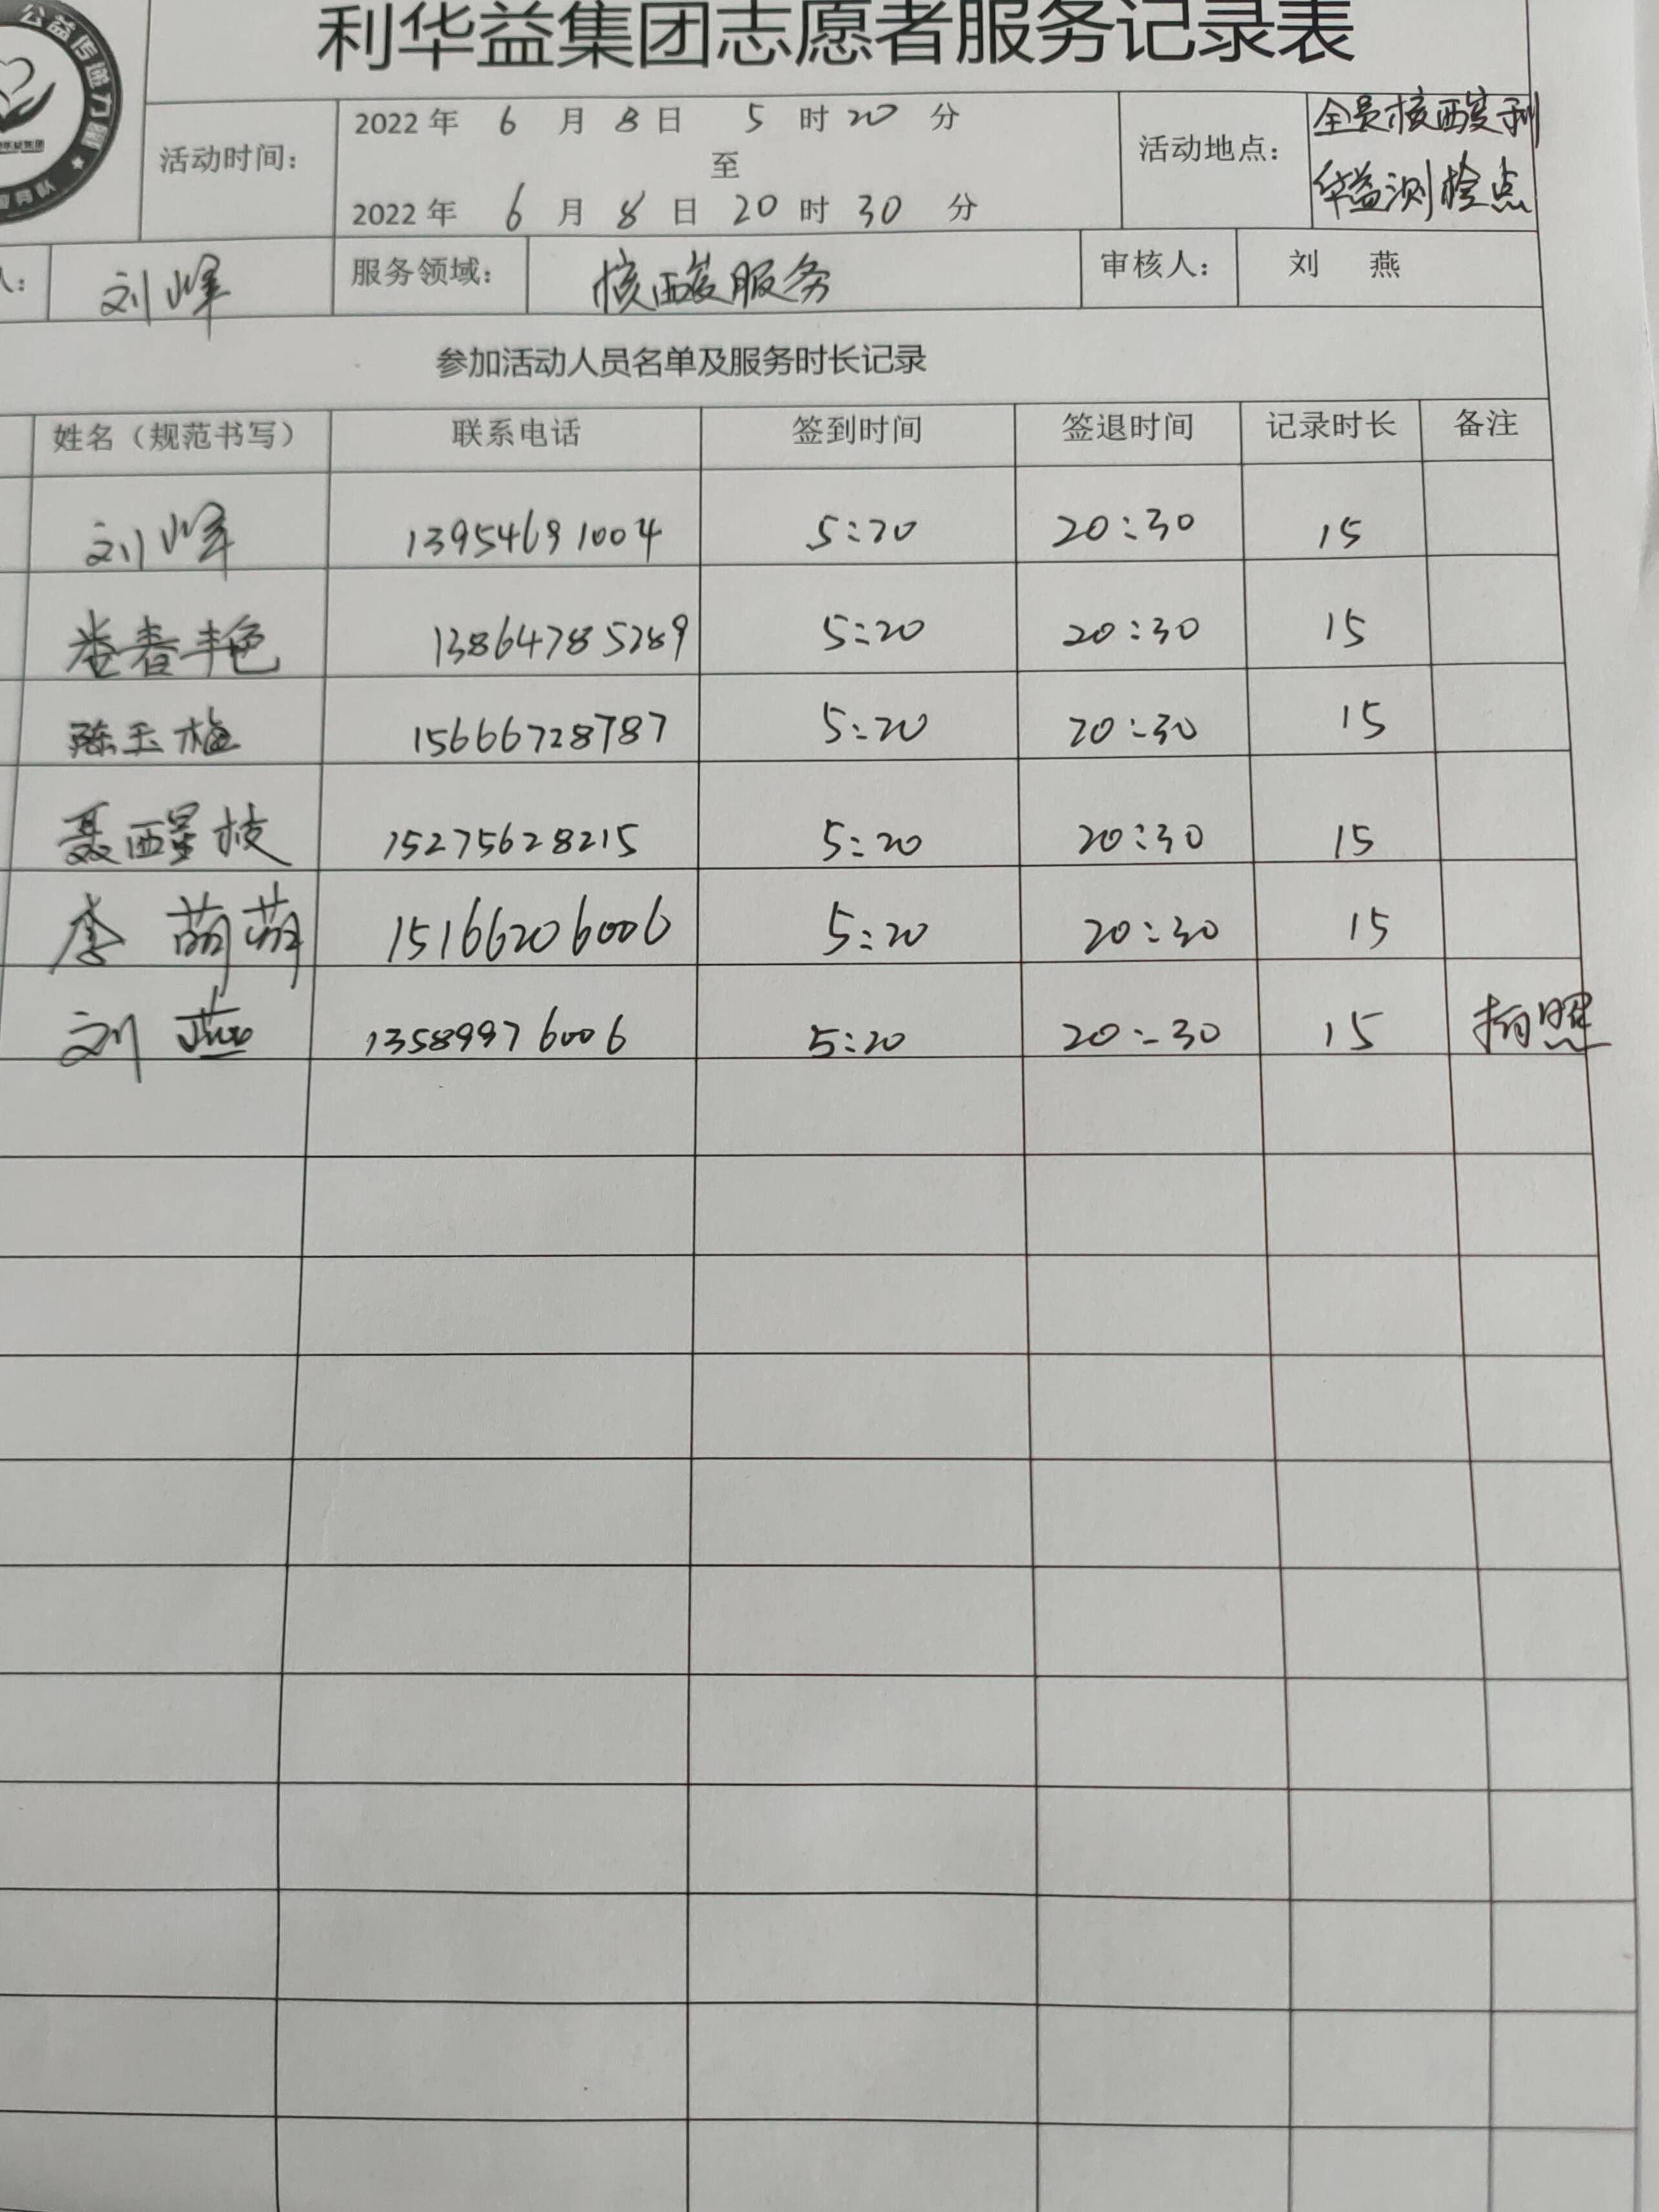 公益传递力量
利华益集团志愿者服务记录表
活动时间：
2022 年 6 月 8 日 5 时 20 分
至
2022 年 6 月 8 日 20 时 30 分
活动地点：
全员核酸利
华益测检点
人：
刘峰
服务领域：
核酸服务
审核人：
刘 燕
参加活动人员名单及服务时长记录
姓名（规范书写） 联系电话 签到时间 签退时间 记录时长 备注
刘峰 13954691004 5:20 20:30 15
春艳 13864785289 5:20 20:30 15
陈玉梅 15666728787 5:20 20:30 15
聂醒枝 15275628215 5:20 20:30 15
李萌萌 15166206006 5:20 20:30 15
刘燕 13589976006 5:20 20:30 15 拍照